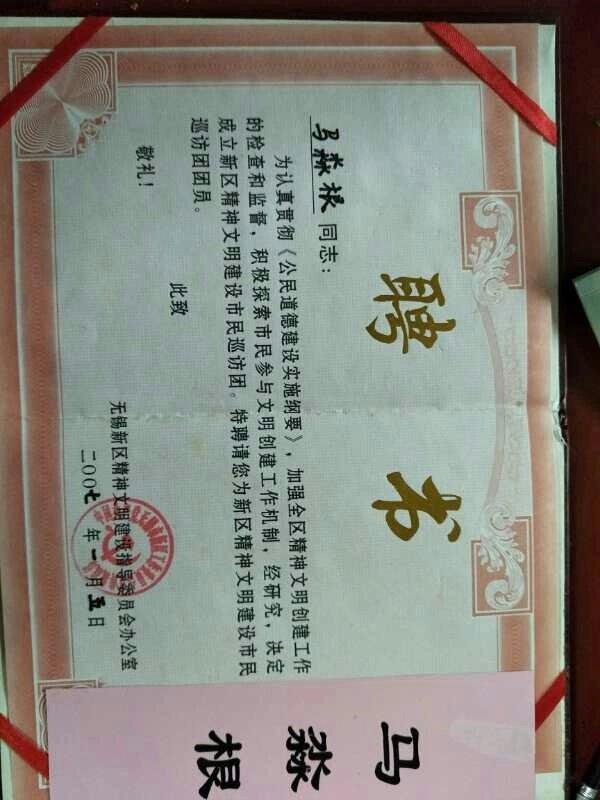 聘书
马淼根 同志：
为认真贯彻《公民道德建设实施纲要》，加强全区精神文明创建工作
的检查和监督，积极探索市民参与文明创建工作机制，经研究，决定
成立新区精神文明建设市民巡访团。特聘请您为新区精神文明建设市民
巡访团团员。
此致
敬礼！
无锡新区精神文明建设指导委员会办公室
二00七年一月五日
马淼根